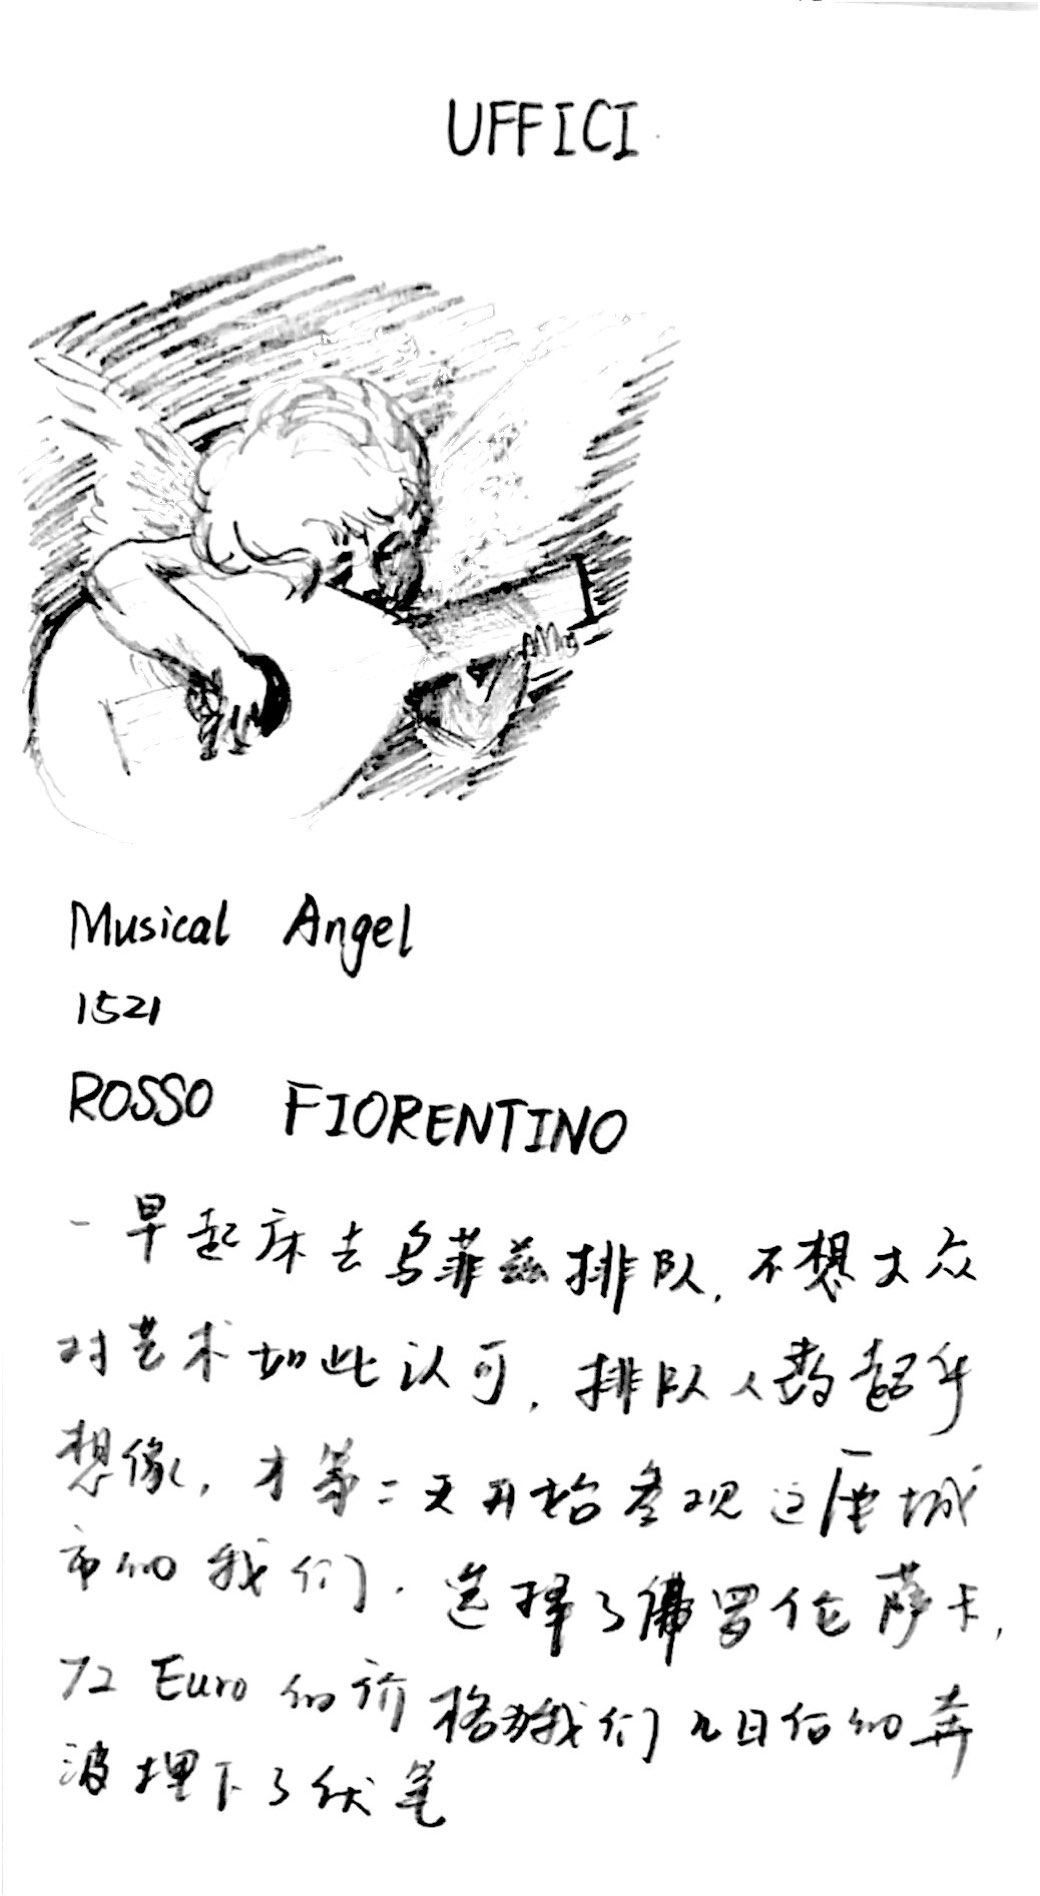 UFFICI
Musical Angel
1521
ROSSO FIORENTINO
一早起床去乌菲兹排队,不想大众
对艺术如此认可,排队人数超乎
想像,才第二天开始参观这座城
市的我们.选择了佛罗伦萨卡,
72 Euro的价格为我们几日后的奔
波埋下了伏笔